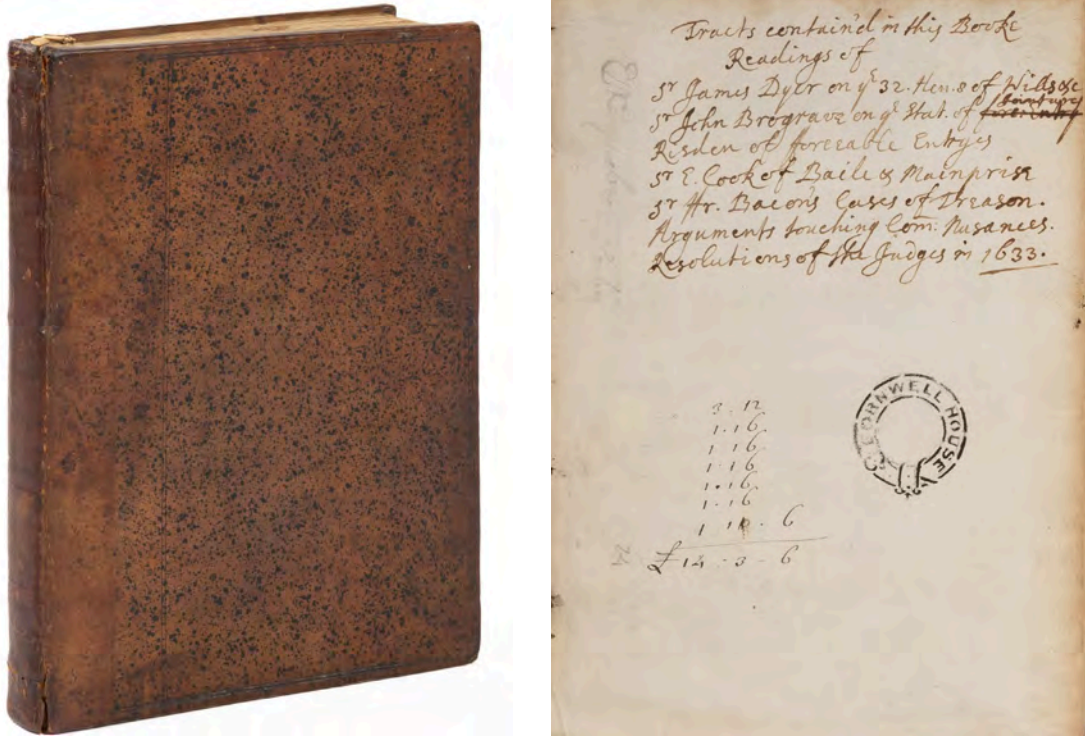 Tracts contain'd in this Booke
Readings of
Sr James Dyer on ye 32. Hen. 8 of Wills &c
Sr John Brograve on ye Stat. of Jointures
Risden of forceable Entryes
Sr E. Cook of Baile & Mainprise
Sr Fr. Bacons Cases of Treason.
Arguments touching Com: Nusances.
Resolutions of the Judges in 1633.
CORNWELL HOUSE
3 . 12
1 . 16
1 16
1 . 16
1 . 16
1 . 16
1 . 10 . 6
£ 14 - 3 - 6